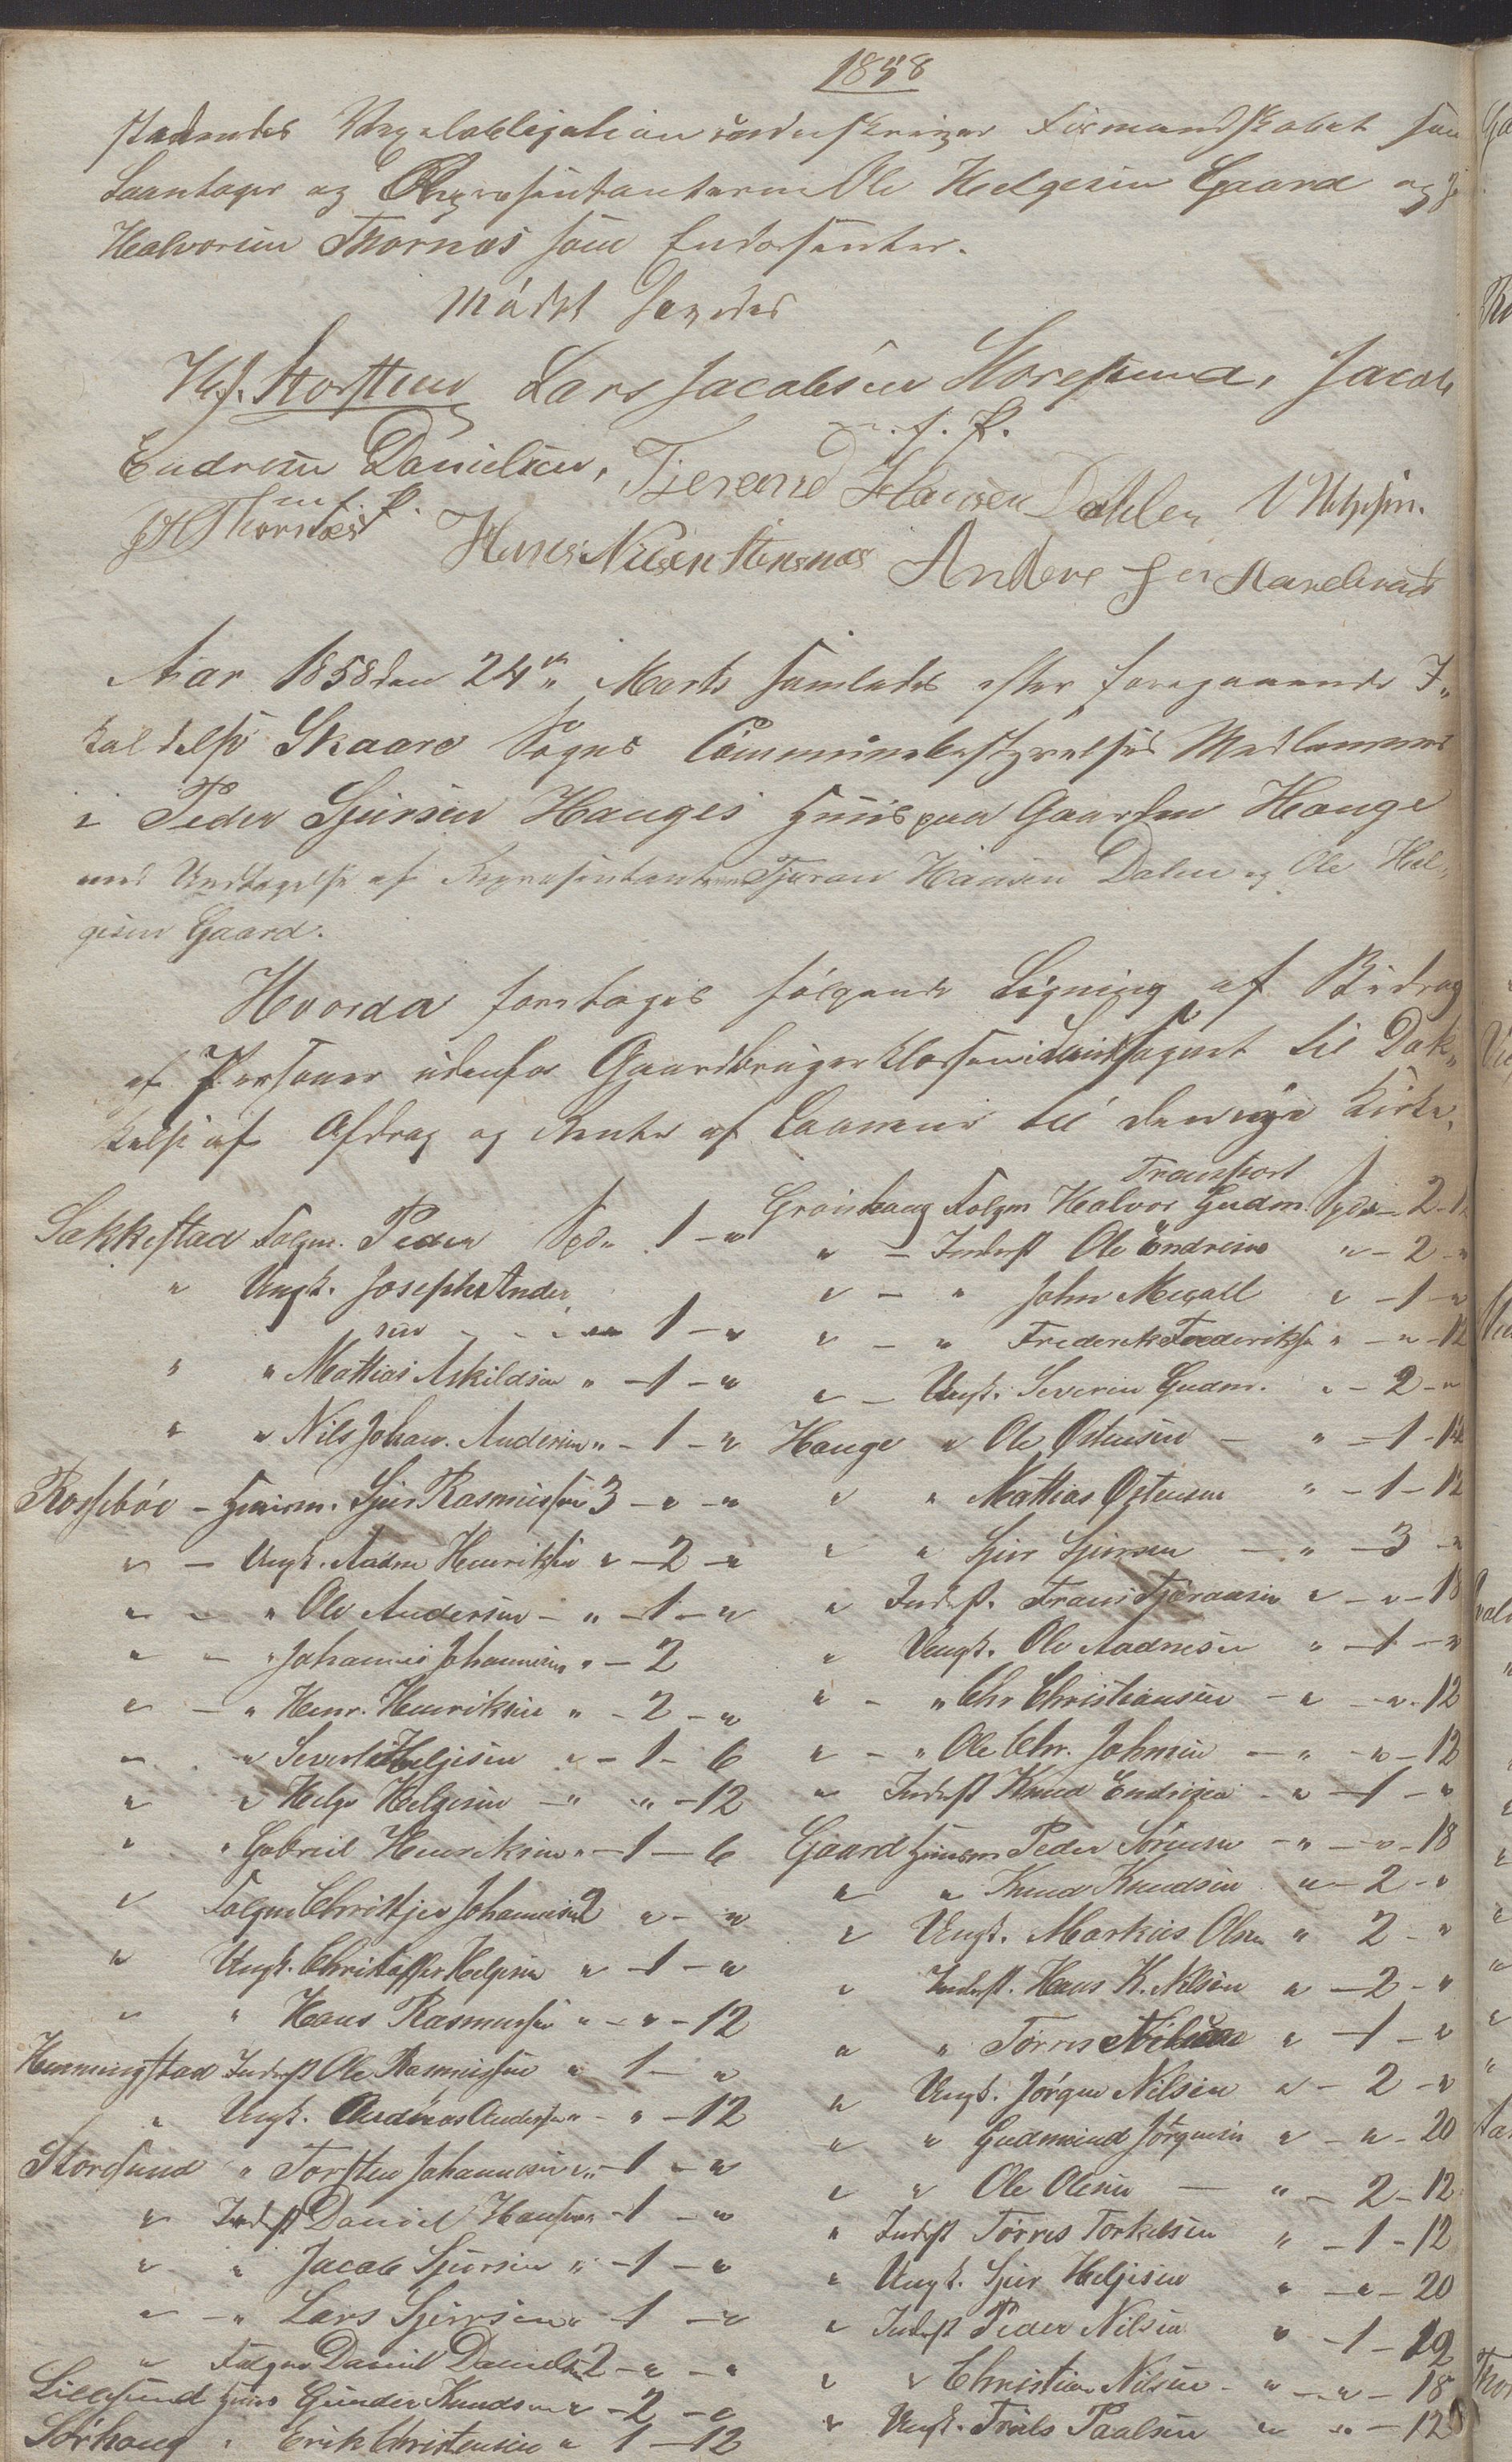 1858
standendes Vexelobligation underskriver Formandskabet som
Laantager og Repræsentanterne Ole Helgesen Gaard og
Halvorsen Thornæs som Endossenter.
Mødet hævedes
Lars Jacobsen Storesund, Jacob
Endresen Danielsen, m. f. P.
Tjerand Hansen Dahlen
m. f. P.
J H Thornæs Hans Nilsen Stensnæs Anders
Aar 1858 den 24de Marts samledes efter foregaaende I„
kaldelse Skaare Sogns Communebestyrelses Medlemmer
i Peder Sjursen Hauges Huus paa Gaarden Hauge
med Undtagelse af Repræsentanterne Tjeran Hansen Dalen og Ole Hel„
gesen Gaard.
Hvorda foretoges følgende Ligning af Bidrag
af Personer udenfor Gaardbrugerklassen i Sognet til Dæk„
kelse af Afdrag og Renter af Laanene til den nye Kirke.
Sakkestad Folgm. Peder Spd. 1 – „
„ Ungk. Joseph Ander
sen 1 – „
„ „ Mathias Askildsen „ – 1 – „
„ „ Nils Johan. Andersen „ – 1 – „
Rossebøe – Huusm. Sjur Rasmussen 3 – „ – „
„ – Ungk. Aadne Henriksen „ – 2 – „
„ – „ Ole Andersen – „ – 1 – „
„ – „ Johannes Johannesen „ – 2
„ – „ Henr. Henriksen „ – 2 – „
„ „ Severt Helgesen „ – 1 – 6
„ „ Helge Helgesen – „ „ – 12
„ „ Gabriel Henriksen „ – 1 – 6
„ Folgm Christjen Johannesen 2 „ – „
„ Ungk. Christoffer Helgesen „ – 1 – „
„ „ Hans Rasmussen „ – „ – 12
Hemmingstad Inderst Ole Rasmussen „ 1 – „
„ Ungk. Andreas Andersen „ – „ – 12
Storesund „ Torsten Johannesen „ – 1 – „
„ Inderst Daniel Hansen – 1 – „
„ „ Jacob Sjursen „ – 1 – „
„ – „ Lars Sjursen „ – 1 – „
„ Folgm Daniel Danielsen 2 – „ – „
Lillesund Huusm Gunder Knudsen „ – 2 – „
Sørhaug „ Erik Christensen „ 1 – 12
Transport
Grønhaug Folgm Halvor Gudm. Spd. – 2 – 12
„ – Inderst Ole Endresen „ – 2 – „
„ – „ John Mcall „ – 1 – „
„ – „ Frederik Frederiksen „ – „ – 12
„ – Ungk. Severin Gudm. „ – 2 – „
Hauge „ Ole Østensen – „ – 1 – 12
„ „ Mathias Østensen „ – 1 – 12
„ „ Sjur Sjursen – „ – 3 – „
„ Inderst. Frans Tjeransen „ – „ – 18
„ Ungk. Ole Aadnesen „ – 1 – „
„ – „ Chr Christiansen – „ – „ – 12
„ – „ Ole Chr. Johnsen – „ – „ – 12
„ Inderst Knud Endresen – „ – 1 – „
Gaard Huusm Peder Sørensen – „ – „ – 18
„ „ Knud Knudsen „ – 2 – „
„ Ungk. Markus Olsen „ 2 – „
„ Inderst. Hans K. Nilsen „ – 2 – „
„ „ Torres Nilsen „ – 1 – „
„ Ungk. Jørgen Nilsen „ – 2 – „
„ „ Gudmund Jørgensen „ – „ – 20
„ „ Ole Olsen – „ – 2 – 12
„ Inderst Tørres Torkelsen „ – 1 – 12
„ Ungk. Sjur Helgesen „ – „ – 20
„ Inderst Peder Nilsen „ – 1 – 12
„ „ Christian Nilsen – „ – „ – 18
„ Ungk. Troels Paalsen „ „ – 12